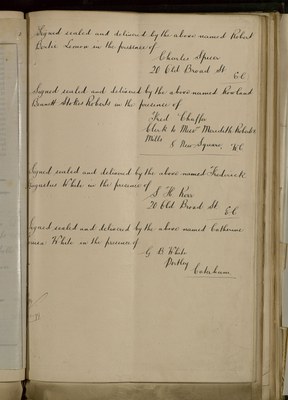 Signed sealed and delivered by the above named Robert
Baxter Lemon in the presence of
Charles Speer
20 Old Broad St.
E.C.
Signed sealed and delivered by the above named Rowland
Bennett Stokes Roberts in the presence of
Fred Chaffe
Clerk to Messrs Meredith Roberts
Mills
8 New Square, W.C.
Signed sealed and delivered by the above named Frederick
Augustus White in the presence of
S. H.
20 Old Broad St.
E.C.
Signed sealed and delivered by the above named Catherine
White in the presence of
G B White
Portley
Caterham